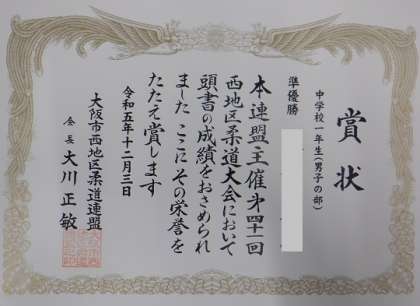 賞状
中学校一年生(男子の部)
準優勝
本連盟主催才四十一回
西地区柔道大会において
頭書の成績をおさめられ
ました ここにその栄誉を
たたえ賞します
令和五年十二月三日
大阪市西地区柔道連盟
会長 大川正敏